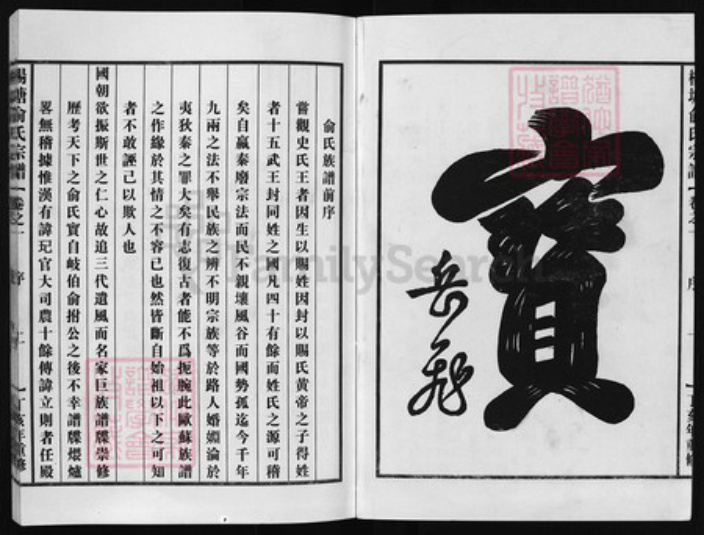 寶
岳飛
俞氏族譜前序
嘗觀史氏王者因生以賜姓因封以賜氏黃帝之子得姓
者十五武王封同姓之國凡四十有餘而姓氏之源可稽
矣自嬴秦廢宗法而民不親壞風谷而國勢孤迄今千年
九兩之法不舉民族之辨不明宗族等於路人婚媾淪於
夷狄秦之罪大矣有志復古者能不爲扼腕此歐蘇族譜
之作緣於其情之不容已也然皆斷自始祖以下之可知
者不敢誣己以欺人也
國朝欲振斯世之仁心故追三代遺風而名家巨族譜牒崇修
歷考天下之俞氏實自岐伯俞拊公之後不幸譜牒煨爐
畧無稽據惟漢有諱玘官大司農十餘傳諱立則者任殿
楊塘俞氏宗譜 卷之一 序 丁亥年重修
FamilySearch